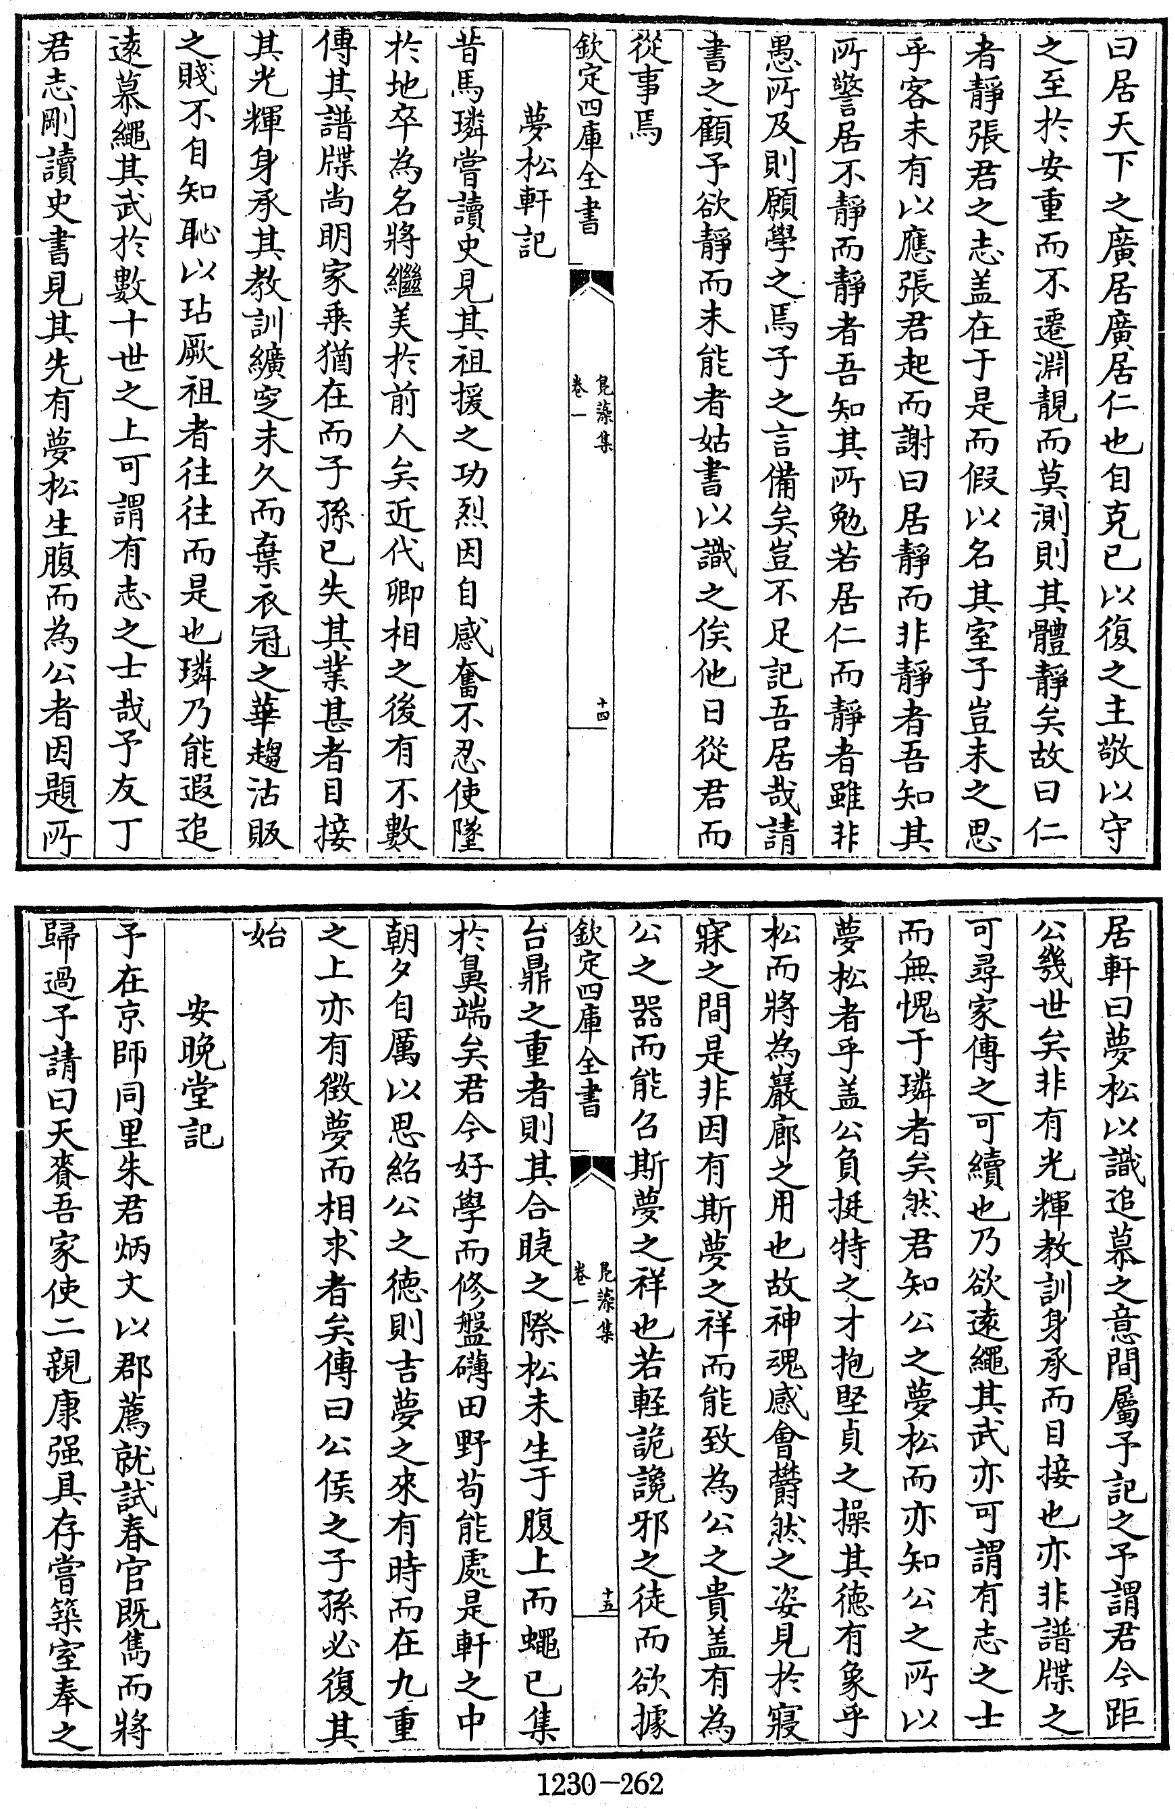 曰居天下之廣居廣居仁也自克已以復之主敬以守
之至於安重而不遷淵靚而莫測則其體靜矣故曰仁
者靜張君之志盖在于是而假以名其室子豈未之思
乎客未有以應張君起而謝曰居靜而非靜者吾知其
所警居不靜而靜者吾知其所勉若居仁而靜者雖非
愚所及則願學之焉子之言備矣豈不足記吾居哉請
書之顧予欲靜而未能者姑書以識之俟他日從君而
從事焉
欽定四庫全書
鳬藻集
卷一
十四
夢松軒記
昔馬璘嘗讀史見其祖援之功烈因自感奮不忍使墜
於地卒為名將繼美於前人矣近代卿相之後有不數
傳其譜牒尚明家乗猶在而子孫已失其業甚者目接
其光輝身承其教訓纊窆未久而棄衣冠之華趨沽販
之賤不自知恥以玷厥祖者往往而是也璘乃能遐追
遠慕繩其武於數十世之上可謂有志之士哉予友丁
君志剛讀史書見其先有夢松生腹而為公者因題所
居軒曰夢松以識追慕之意間屬予記之予謂君今距
公幾世矣非有光輝教訓身承而目接也亦非譜牒之
可尋家傳之可續也乃欲遠繩其武亦可謂有志之士
而無愧于璘者矣然君知公之夢松而亦知公之所以
夢松者乎盖公負挺特之才抱堅貞之操其德有象乎
松而將為巖廊之用也故神魂感會欝然之姿見於寢
寐之間是非因有斯夢之祥而能致為公之貴盖有為
公之器而能召斯夢之祥也若輕詭讒邪之徒而欲據
欽定四庫全書
鳬藻集
卷一
十五
台鼎之重者則其合睫之際松未生于腹上而蠅已集
於鼻端矣君今好學而修盤礴田野苟能處是軒之中
朝夕自厲以思紹公之德則吉夢之來有時而在九重
之上亦有徵夢而相求者矣傳曰公侯之子孫必復其
始
安晚堂記
予在京師同里朱君炳文以郡薦就試春官既雋而將
歸過予請曰天賚吾家使二親康强具存嘗築室奉之
1230-262